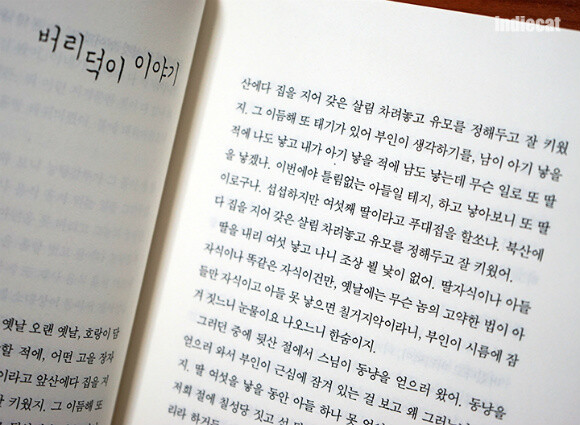 indiecat
버리덕이 이야기
옛날 오랜 옛날, 호랑이 담
할 적에, 어떤 고을 장자
이라고 앞산에다 집을 지
키웠지. 그 이듬해 또
산에다 집을 지어 갖은 살림 차려놓고 유모를 정해두고 잘 키웠
지. 그 이듬해 또 태기가 있어 부인이 생각하기를, 남이 아기 낳을
적에 나도 낳고 내가 아기 낳을 적에 남도 낳는데 무슨 일로 또 딸
을 낳겠나. 이번에야 틀림없는 아들일 테지, 하고 낳아보니 또 딸
이로구나. 섭섭하지만 여섯째 딸이라고 푸대접을 할쏘냐. 북산에
다 집을 지어 갖은 살림 차려놓고 유모를 정해두고 잘 키웠어.
딸을 내리 여섯 낳고 나니 조상 뵐 낯이 없어. 딸자식이나 아들
자식이나 똑같은 자식이건만, 옛날에는 무슨 놈의 고약한 법이 아
들만 자식이고 아들 못 낳으면 칠거지악이라니, 부인이 시름에 잠
겨 짓느니 눈물이요 나오느니 한숨이지.
그러던 중에 뒷산 절에서 스님이 동냥을 얻으러 왔어. 동냥을
얻으러 와서 부인이 근심에 잠겨 있는 걸 보고 왜 그러느
지. 딸 여섯을 낳을 동안 아들 하나 못
저희 절에 칠성당 짓고 석
리라 하거든